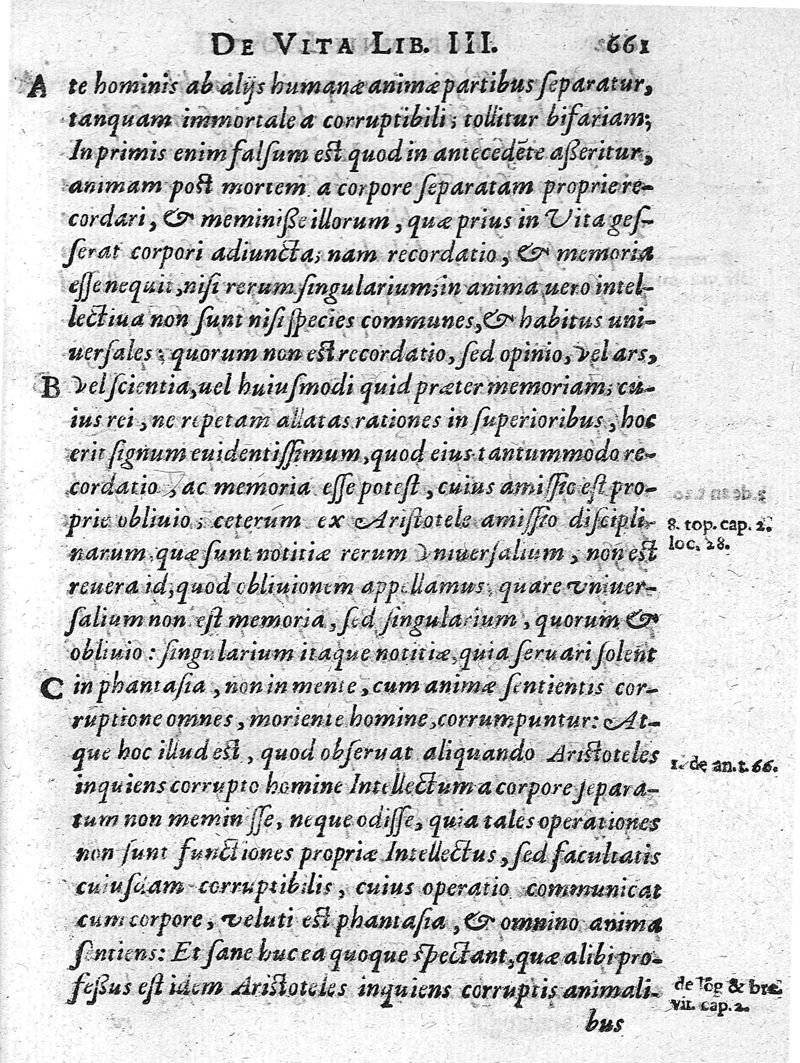 DE VITA LIB. III. 661
A te hominis ab alijs humanæ animæ partibus ſeparatur,
tanquam immortale a corruptibili; tollitur bifariam;
In primis enim falſum est quod in antecedēte aßeritur,
animam post mortem a corpore ſeparatam proprie re-
cordari, & meminiße illorum, quæ prius in Vita geſ-
ſerat corpori adiuncta; nam recordatio, & memoria
eſſe nequit, niſi rerum ſingularium; in anima uero intel-
lectiua non ſunt niſi ſpecies communes, & habitus uni-
uerſales; quorum non est recordatio, ſed opinio, vel ars,
B vel ſcientia, uel huiuſmodi quid præter memoriam; cu-
ius rei, ne repetam allatas rationes in ſuperioribus, hoc
erit ſignum euidentiſſimum, quod eius tantummodo re-
cordatio, ac memoria eſſe potest, cuius amiſſio est pro-
prie obliuio; ceterum ex Aristotele amiſſio diſcipli-
8. top. cap. 2.
narum, quæ ſunt notitiæ rerum Vniuerſalium, non est
loc. 28.
reuera id, quod obliuionem appellamus, quare vniuer-
ſalium non est memoria, ſed ſingularium, quorum &
obliuio: ſingularium itaque notitiæ, quia ſeruari ſolent
C in phantaſia, non in mente, cum animæ ſentientis cor-
ruptione omnes, moriente homine, corrumpuntur: At-
que hoc illud est, quod obſeruat aliquando Aristoteles
1. de an. t. 66.
inquiens corrupto homine Intellectum a corpore ſepara-
tum non meminiſſe, neque odiſſe, quia tales operationes
non ſunt functiones propriæ Intellectus, ſed facultatis
cuiuſdam corruptibilis, cuius operatio communicat
cum corpore, veluti est phantaſia, & omnino anima
ſentiens: Et ſane huc ea quoque ſpectant, quæ alibi pro-
feßus est idem Aristoteles inquiens corruptis animali-
de lōg & bre
vit. cap. 2.
bus